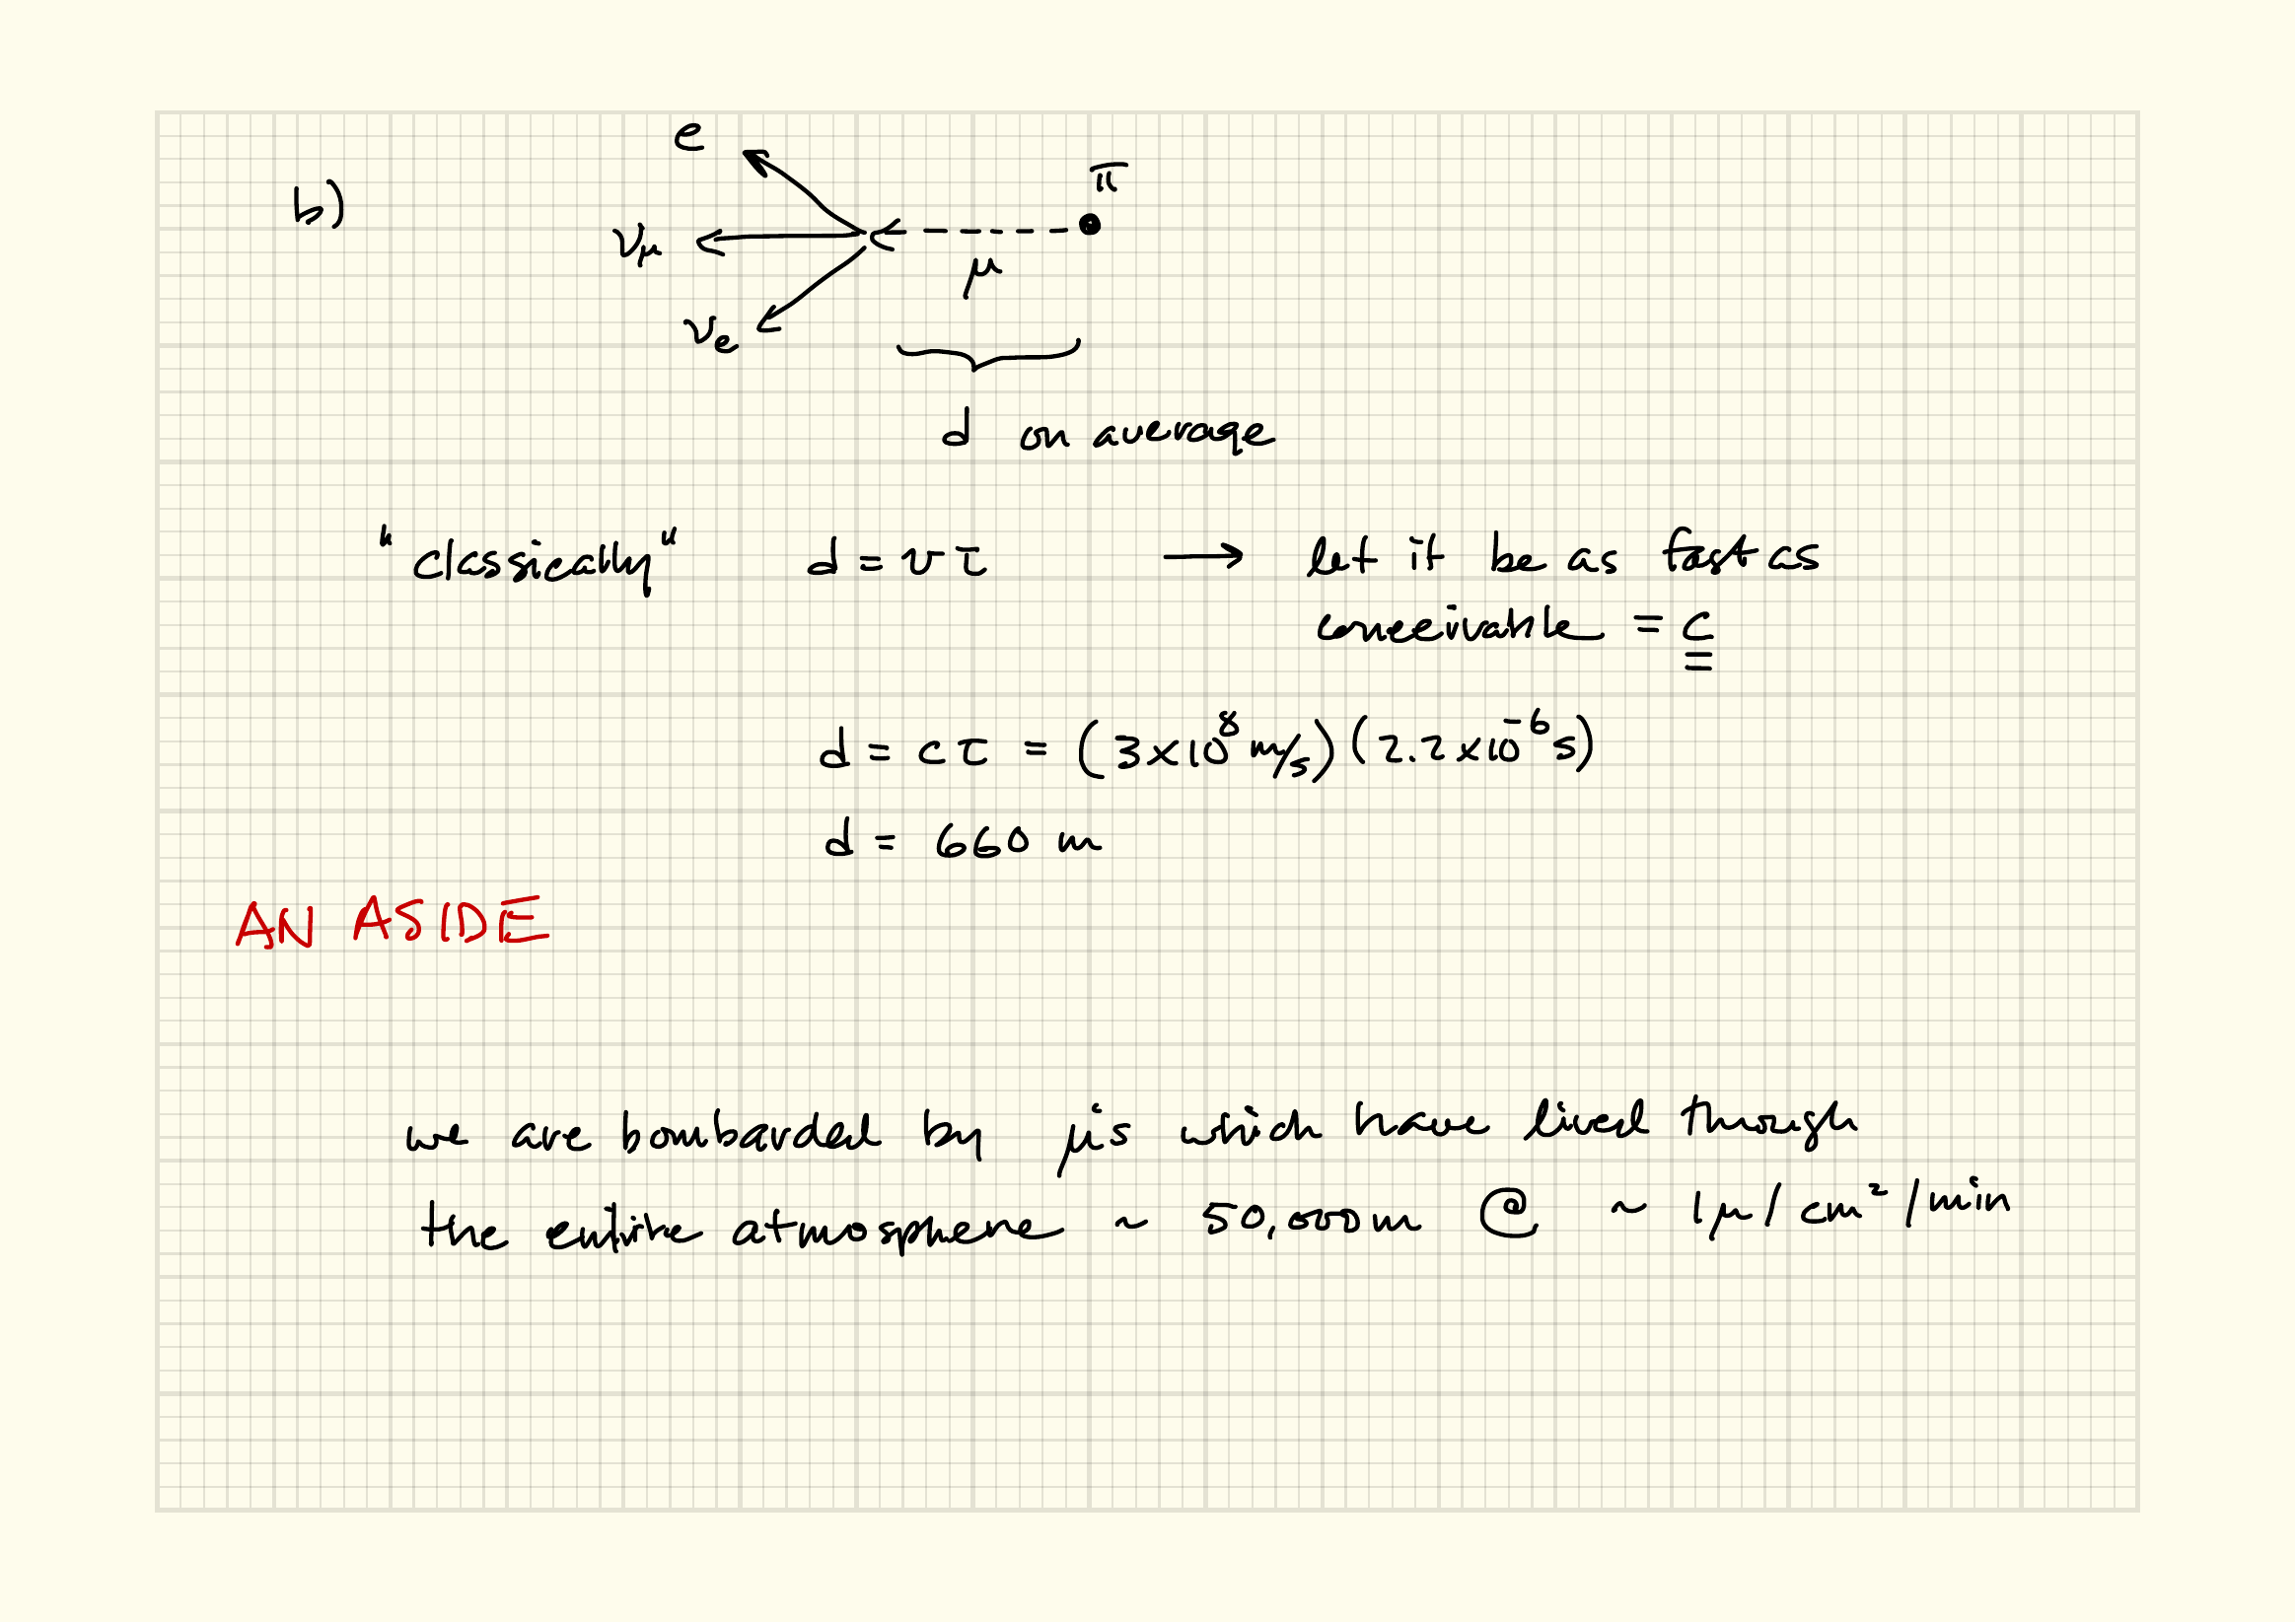 e
π
b)
ν_μ
μ
ν_e
d on average
"classically" d = vτ → let it be as fast as
conceivable = c
d = cτ = (3×10⁸ m/s)(2.2×10⁻⁶ s)
d = 660 m
AN ASIDE
we are bombarded by μ's which have lived through
the entire atmosphere ~ 50,000m @ ~ 1μ/cm²/min